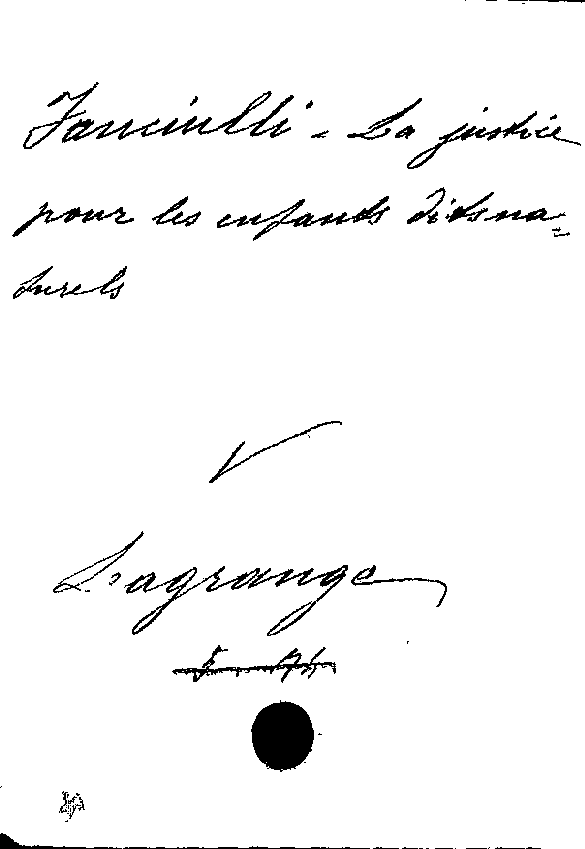 Fanciulli - La justice
pour les enfants dits na=
turels
V
Lagrange